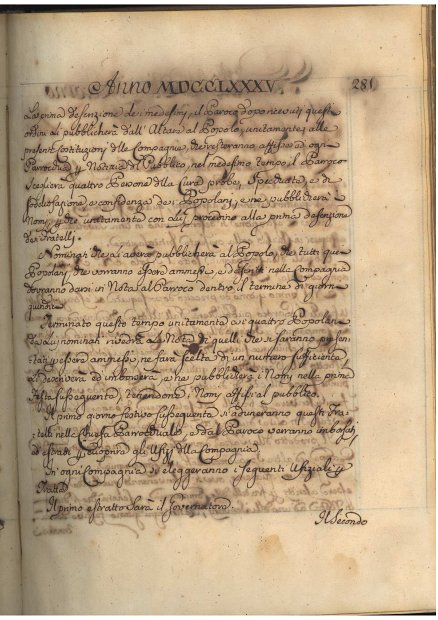 Anno MDCCLXXXV. 281
La prima descrizione dei medesimi, il Paroco dopo ricevuti questi
ordini li pubblicherà dall' Altare al Popolo, unitamente alle
presenti Costituzioni delle Compagnie, che resteranno affisse ad ogni
Parrocchia p Notizia di Pubblico, nel medesimo tempo il Paroco
sceglierà quattro Persone della Cura probe, Spettate, e di
soddisfazione e confidenza dei Popolani, e ne pubblicherà
Nomi, p che unitamente con lui procedino alla prima descrizione
dei Fratelli.
Nominati che li averà pubblicherà al Popolo, che tutti quei
Popolani che vorranno essere ammessi e descritti nella Compagnia
dovranno darsi in Nota al Paroco dentro il termine di giorni
quindici.
Terminato questo tempo unitamente ai quattro Popolani
da lui nominati rivedrà la Nota di quelli che si saranno presen-
tati p essere ammessi, ne farà scelta di un numero sufficiente,
li descriverà ed imborserà, e ne pubblicherà i Nomi nella prima
Festa susseguente, tenendone i Nomi affissi al pubblico.
Il primo giorno festivo susseguente si aduneranno questi Fra-
telli nella Chiesa Parrocchiale, e dal Paroco verranno imborsati,
ed estratti p coprire gli Ufizj della Compagnia.
In ogni Compagnia si eleggeranno i seguenti Ufiziali p
Tratta
Il primo estratto sarà il Governatore.
Il Secondo